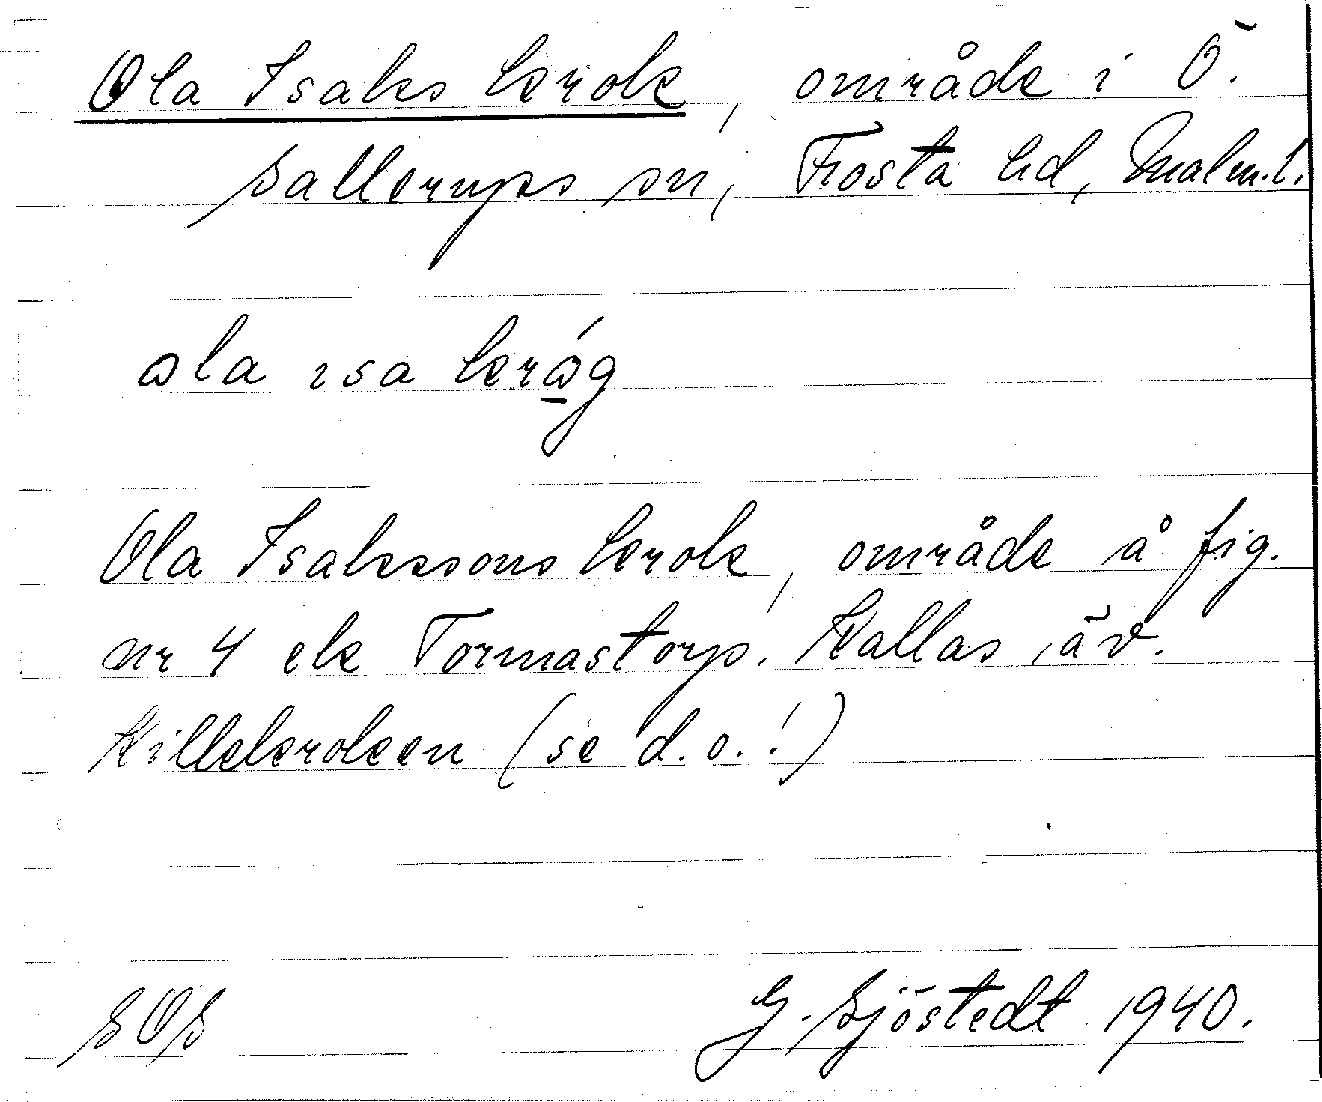 Ola Isaks krok, område i Ö.
Sallerups sn, Frosta hd, Malm.l.
ola isa króg
Ola Isakssons krok, område å fig.
nr 4 ek Tormastorp. Kallas äv.
Killekroken (se d.o.!)
SOS G. Sjöstedt 1940.